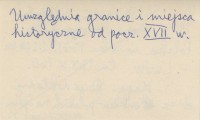 Uwzględnia granice i miejsca
historyczne od pocz. XVII w.